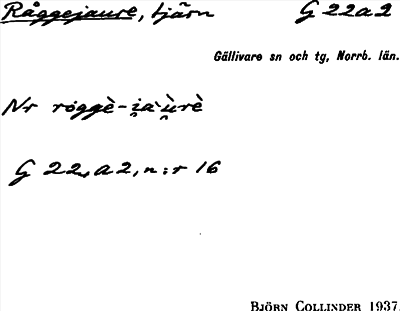 Råggejaure, tjärn G 22 a 2
Gällivare sn och tg, Norrb. län.
Nr roggè-i̯a`ù̯rè
G 22, a 2, n:r 16
BJÖRN COLLINDER 1937.